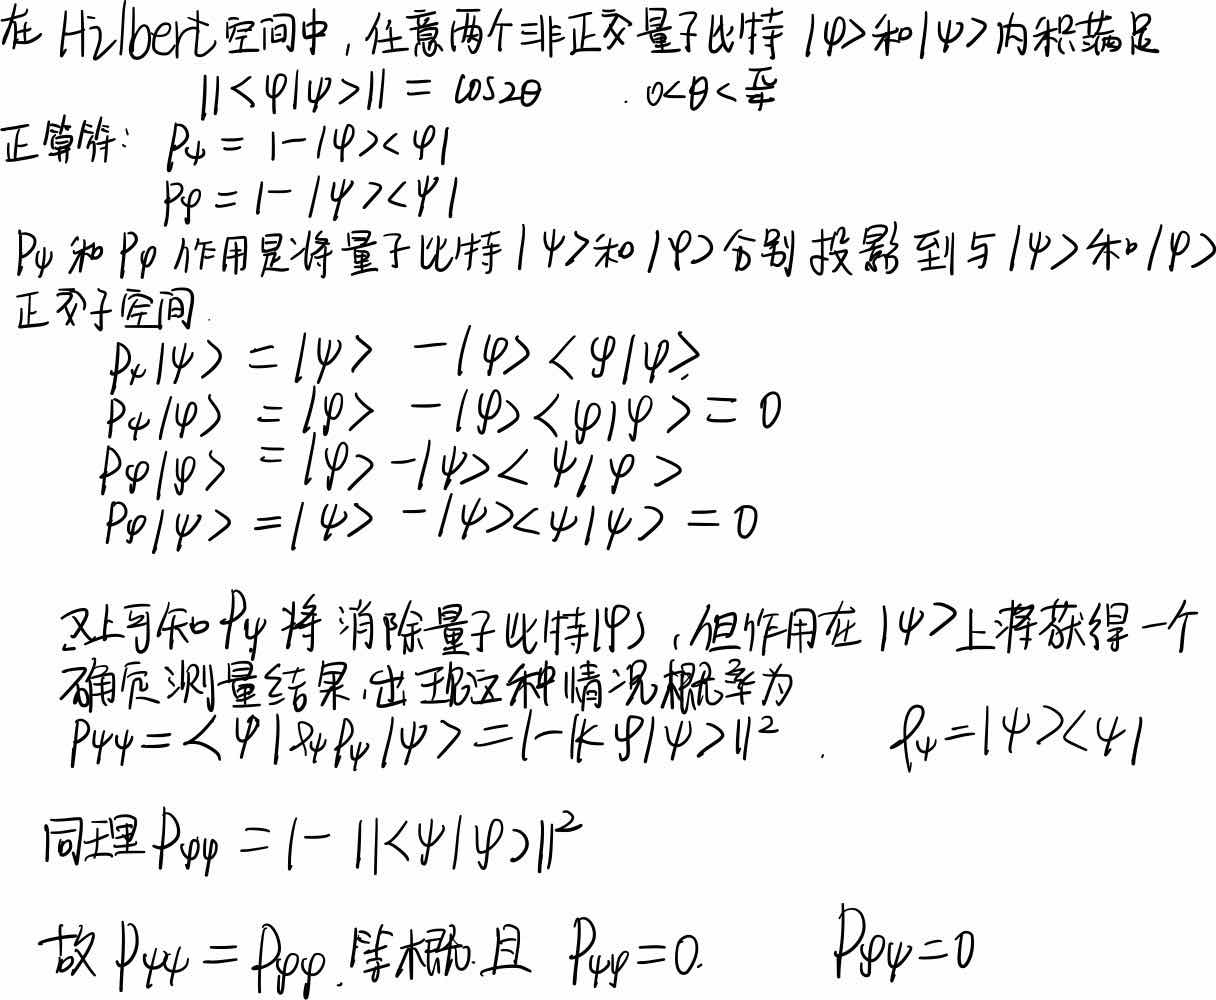 在 Hilbert 空间中,任意两个非正交量子比特 |φ>和|ψ>内积满足
||<φ|ψ>|| = cos2θ . 0<θ<π/4
正算符: Pψ = 1-|φ><φ|
Pφ = 1-|ψ><ψ|
Pψ 和 Pφ 作用是将量子比特 |ψ>和|φ>分别投影到与|ψ>和|φ>
正交子空间.
Pψ|ψ> = |ψ> -|φ><φ|ψ>
Pψ|φ> = |φ> -|φ><φ|φ> = 0
Pφ|φ> = |φ> -|ψ><ψ|φ>
Pφ|ψ> = |ψ> -|ψ><ψ|ψ> = 0
上可知 Pψ 将消除量子比特|φ>,但作用在 |ψ>上将获得一个
确定测量结果,出现这种情况概率为
Pψψ = <ψ|ρψPψ|ψ> = 1-||<φ|ψ>||² . ρψ = |ψ><ψ|
同理 Pφφ = 1- ||<ψ|φ>||²
故 Pψψ = Pφφ. 等概. 且 Pψφ = 0. Pφψ = 0